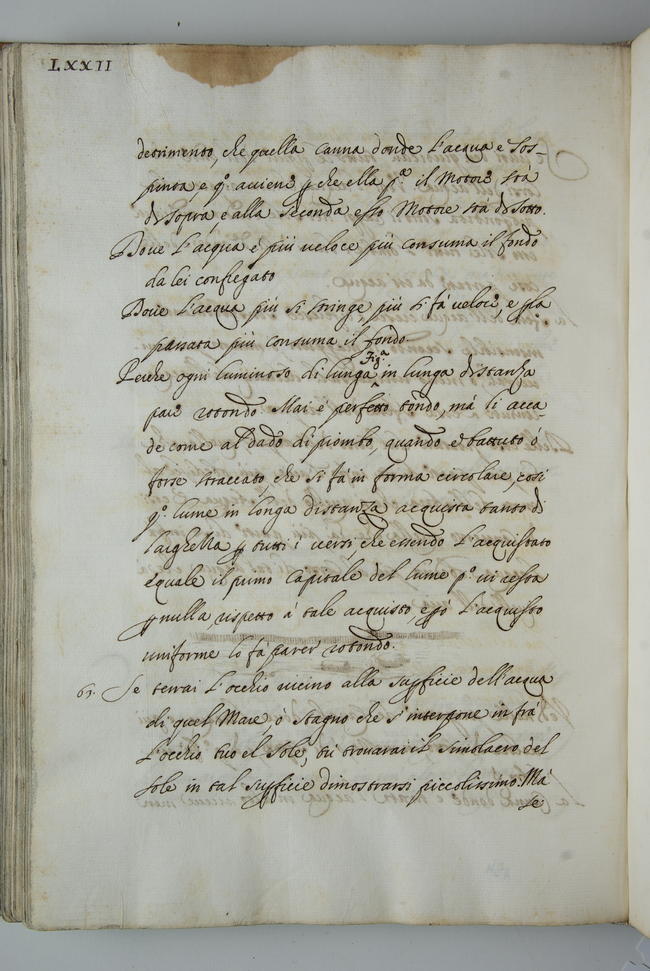 LXXII
detrimento, che quella canna donde l'acqua e sos=
pinta, e q.º aviene p che ella p.ª il Motore stà
di sopra, e alla seconda esso Motore sta di sotto.
Dove l'acqua è più veloce più consuma il fondo
da lei confregato
Dove l'acqua più si stringe, più si fà veloce, e p la
passata più consuma il fondo.
Perche ogni luminoso di lunga Fig.ª in lunga distanza
pare rotondo. Mai è perfetto tondo, mà li acca
de come al dado di piombo, quando è battuto ò
forse straccato, che si fà in forma circolare, così
q.º lume in longa distanza acquista tanto di
larghezza p tutti i versi, che essendo l'acquistato
equale il primo Capitale del lume p.º vi resta
p nulla, rispetto à tale acquisto, e però l'acquisto
uniforme lo fà parer rotondo.
63. Se terrai l'occhio vicino alla superficie dell'acqua
di quel Mare, ò stagno che s'interpone in fra
l'occhio tuo e'l sole, tu trovarai il simolacro del
sole in tal superficie dimostrarsi piccolissimo. Mà
se